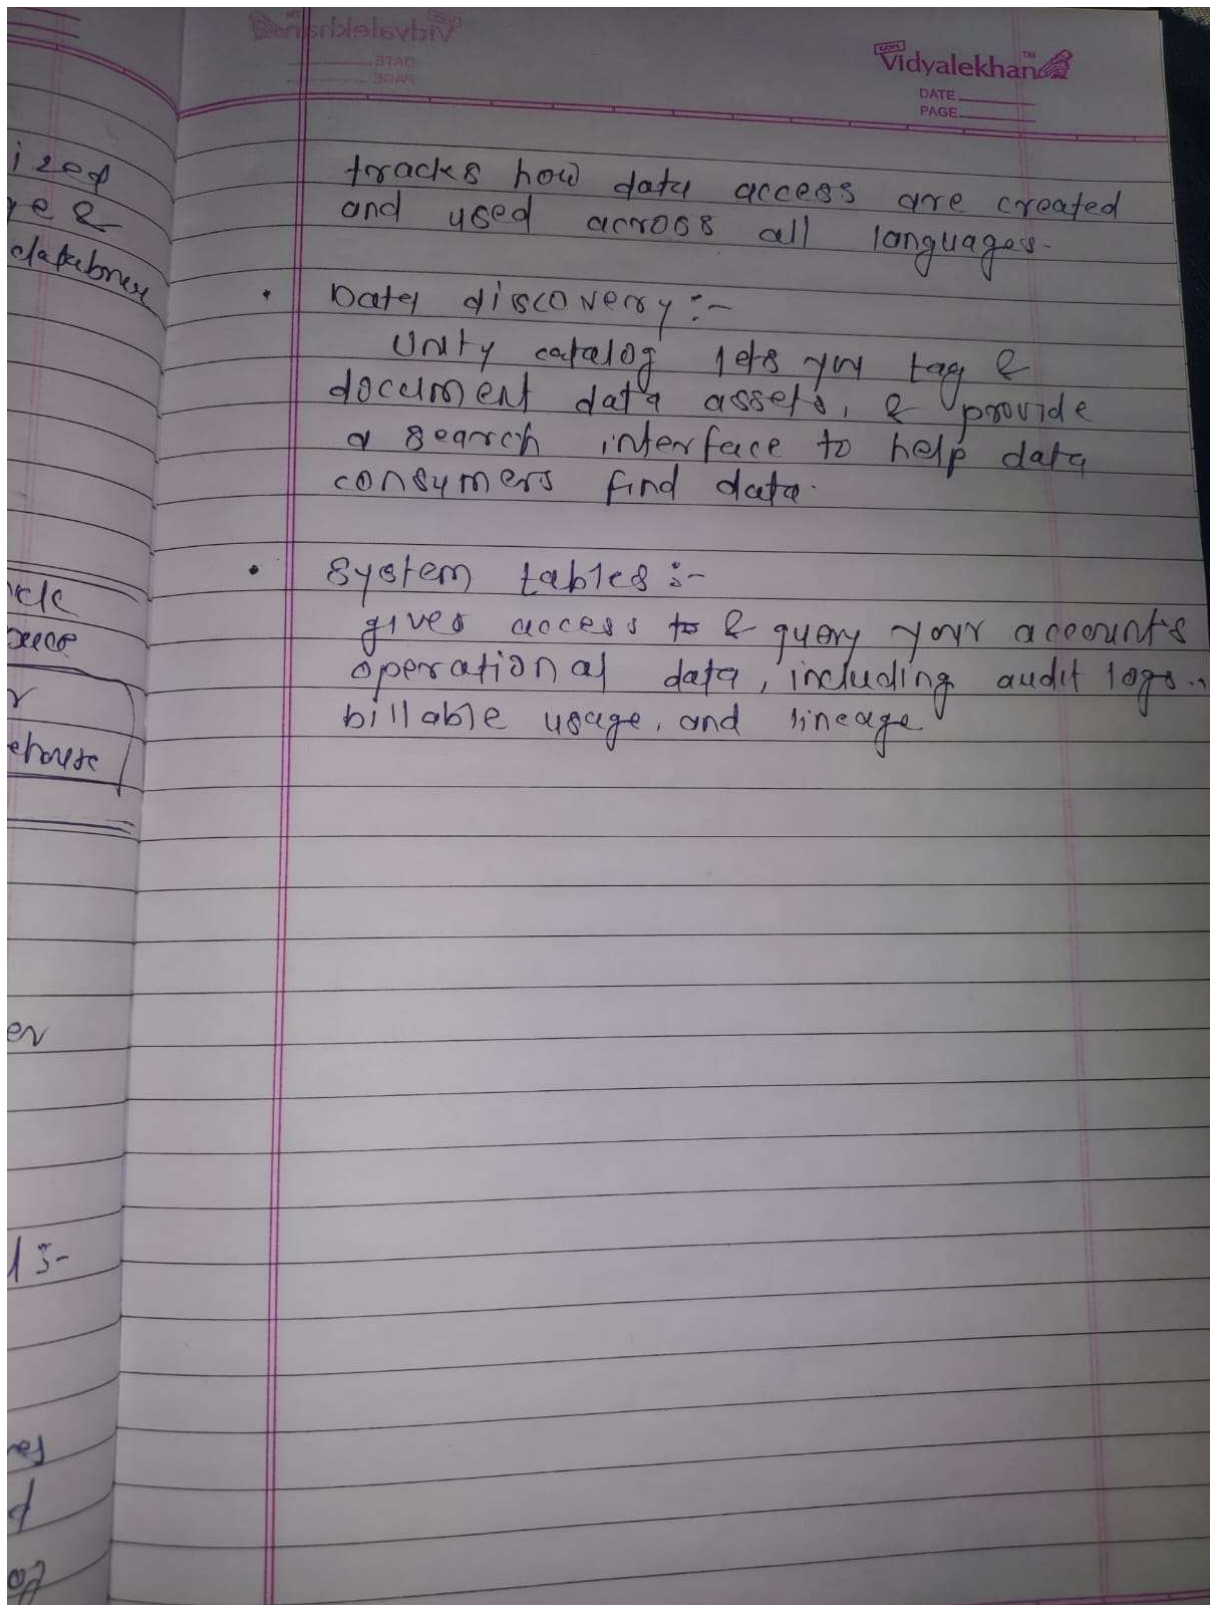 Vidyalekhan™
DATE
PAGE
tracks how data access are created
and used across all languages.
• Data discovery :-
Unity catalog lets you tag &
document data assets, & provide
a search interface to help data
consumers find data.
• System tables :-
gives access to & query your account's
operational data, including audit logs..
billable usage, and lineage
ized
re &
database
ehouse
er
1 :-
es
d